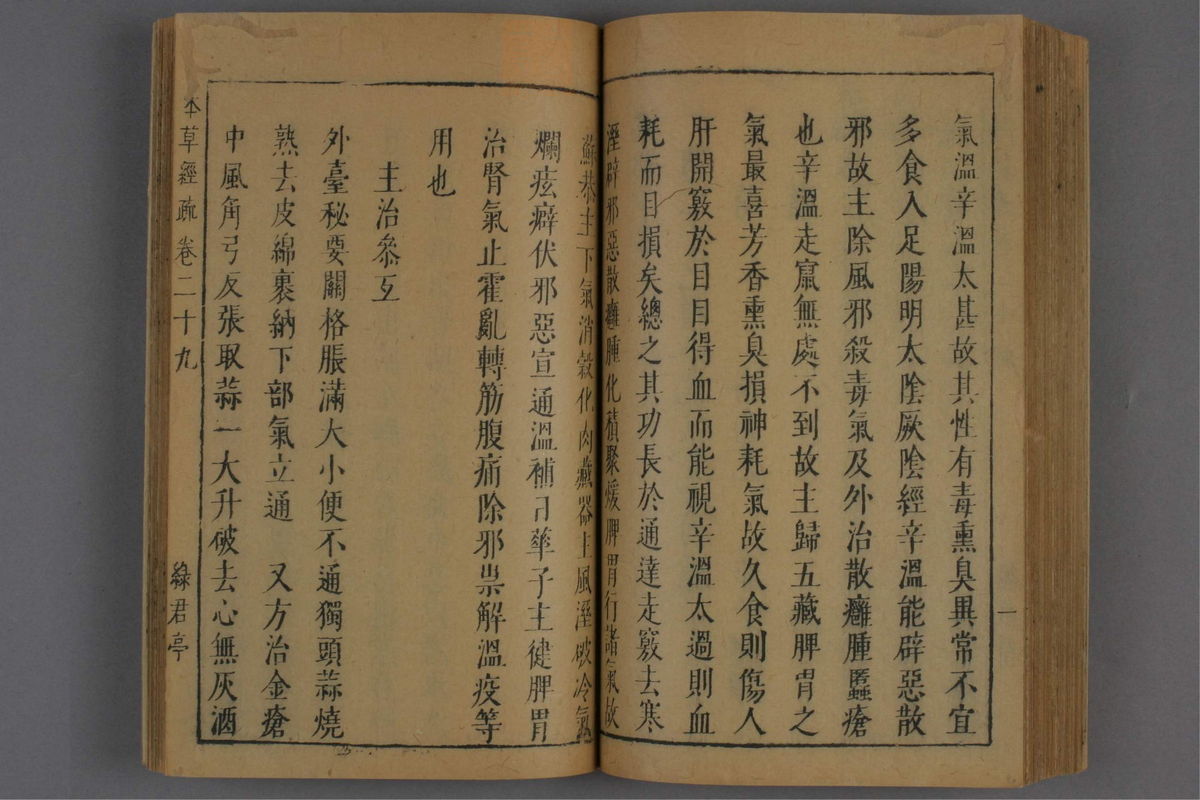 氣溫辛溫太甚故其性有毒熏臭異常不宜
多食入足陽明太陰厥陰經辛溫能辟惡散
邪故主除風邪殺毒氣及外治散癰腫䘌瘡
也辛溫走竄無處不到故主歸五藏脾胃之
氣最喜芳香熏臭損神耗氣故久食則傷人
肝開竅於目目得血而能視辛溫太過則血
耗而目損矣總之其功長於通達走竅去寒
溼辟邪惡散癰腫化積聚煖脾胃行諸氣故
蘇恭主下氣消穀化肉藏器主風溼破冷氣
爛痃癖伏邪惡宣通溫補日華子主健脾胃
治腎氣止霍亂轉筋腹痛除邪祟解溫疫等
用也
主治參互
外臺秘要關格脹滿大小便不通獨頭蒜燒
熟去皮綿裹納下部氣立通 又方治金瘡
中風角弓反張取蒜一大升破去心無灰酒
本草經疏 卷二十九 綠君亭